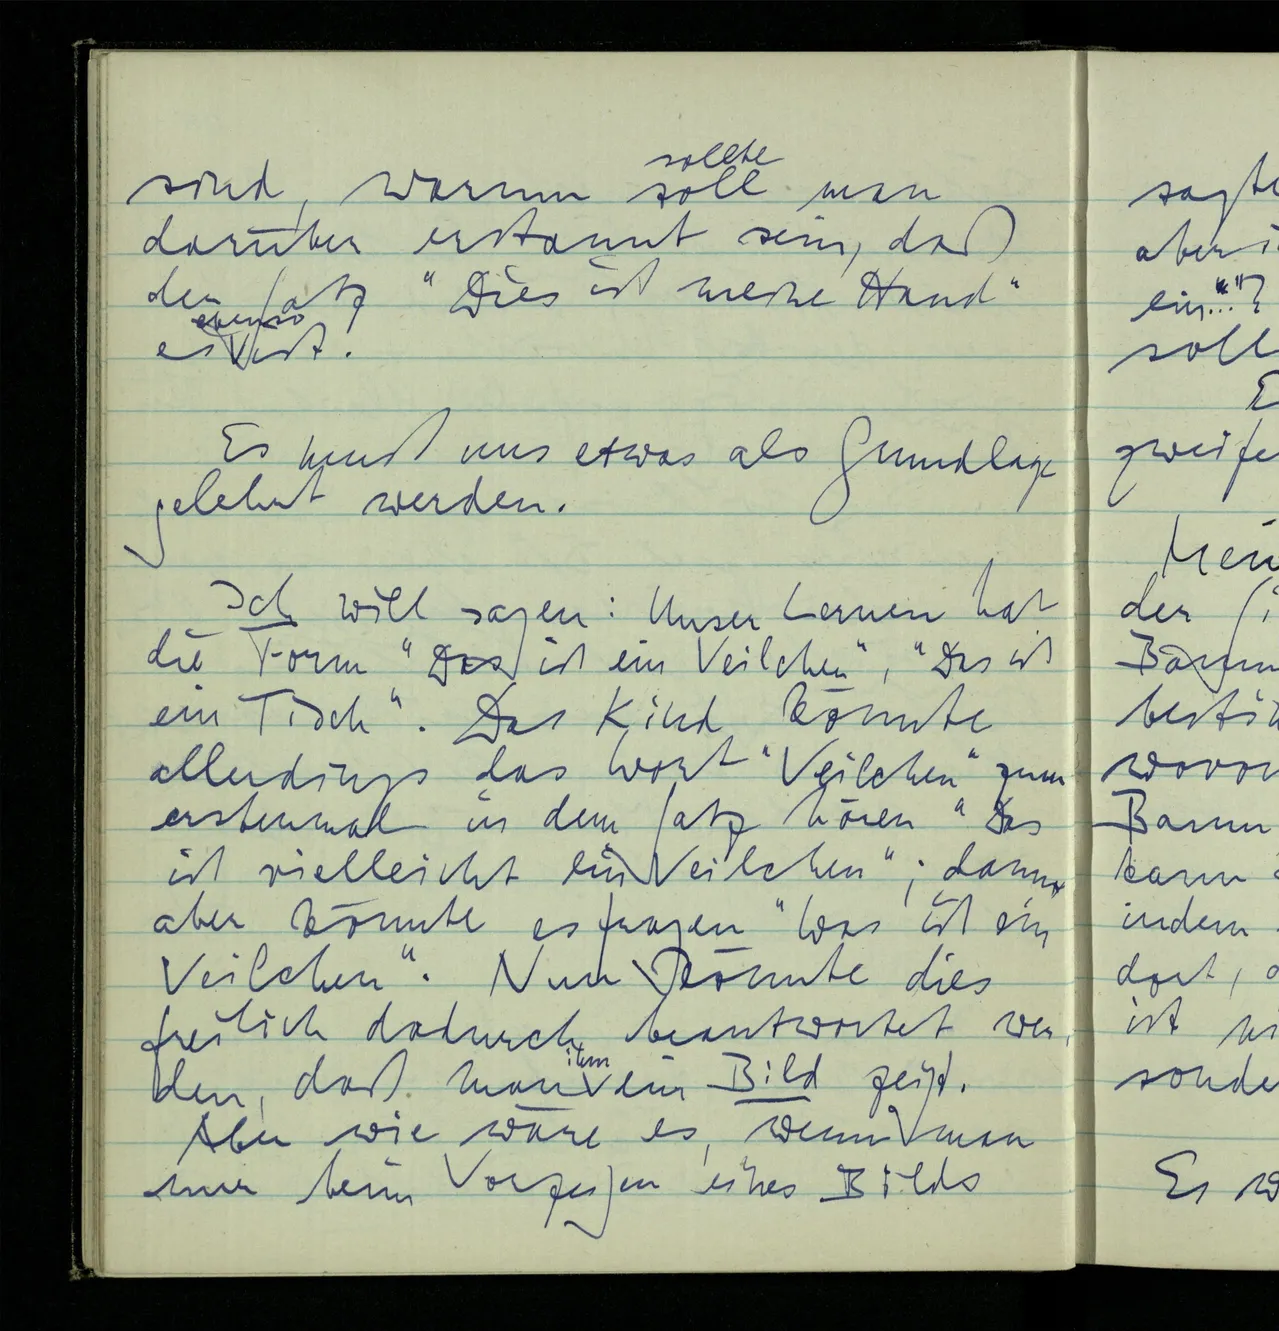 sollte
sind, warum soll man
darüber erstaunt sein, daß
der Satz "Dies ist meine Hand"
ebenso
es ist.
Es muß uns etwas als Grundlage
gelehrt werden.
Ich will sagen: Unser Lernen hat
die Form "Das ist ein Veilchen", "Das ist
ein Tisch". Das Kind könnte
allerdings das Wort "Veilchen" zum
erstenmal in dem Satz hören "Das
ist vielleicht ein Veilchen"; dann
aber könnte es fragen "Was ist ein
Veilchen". Nun könnte dies
freilich dadurch beantwortet wer-
ihm
den, daß man ein Bild zeigt.
Aber wie wäre es, wenn man
nur beim Vorzeigen eines Bilds
sagte
aber i
ein..."?
soll
E
zweife
Mein
der Si
Baum
bestim
wovon
Baum
kann
indem
dort, d
ist ni
sonde
Es w